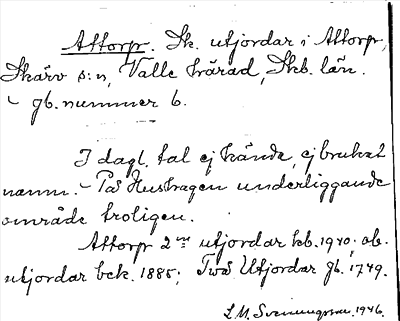 Attorp. Sk. utjordar i Attorp,
Skärv s:n, Valle härad, Skb. län.
– jb. nummer 6.
I dagl. tal ej kände, ej brukat
namn. – På Hushagen underliggande
område troligen.
Attorp 2ne utjordar hb. 1940; ab.
utjordar bek. 1885; Två Utjordar jb. 1749.
L.M. Svenungsson. 1946.